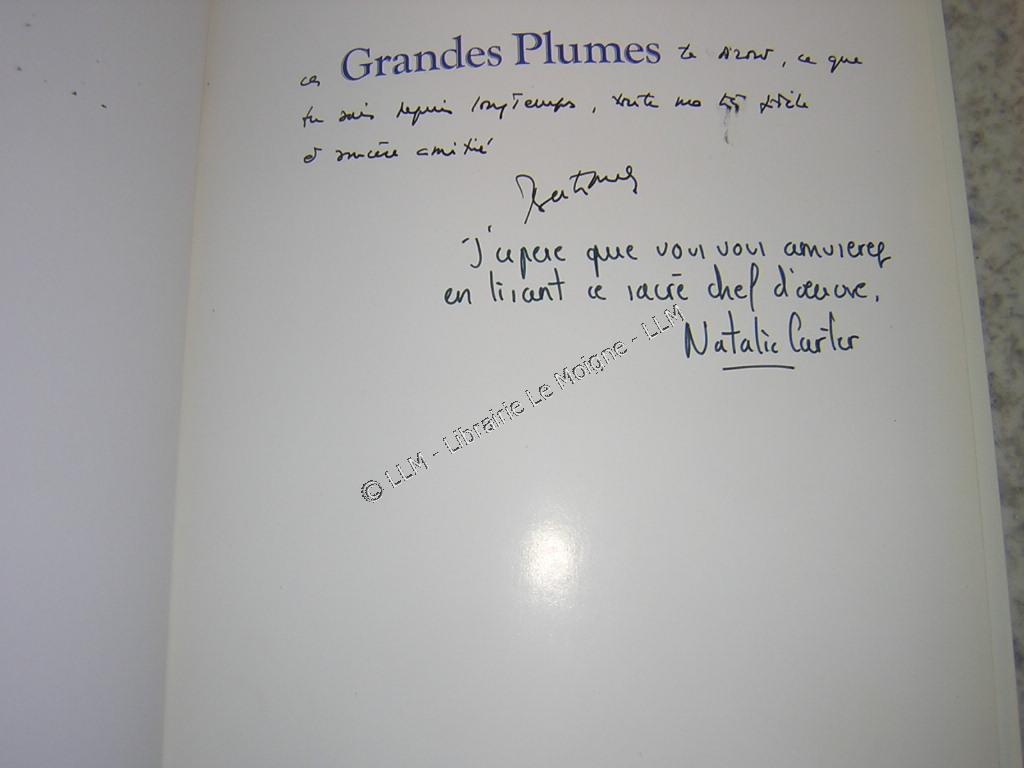 ces Grandes Plumes te diront, ce que
tu sais depuis longtemps, toute ma très fidèle
et sincère amitié
J'espère que vous vous amuserez
en lisant ce sacré chef d'œuvre.
Natalie Carter
© LLM - Librairie Le Moigne - LLM